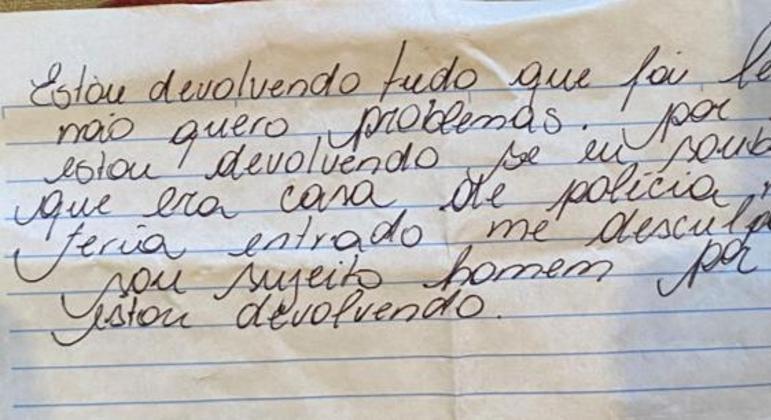 Estou devolvendo tudo que foi le
não quero problemas. por
estou devolvendo se eu soub
que era casa de policia, n
teria entrado me desculp
sou sujeito homem por
estou devolvendo.